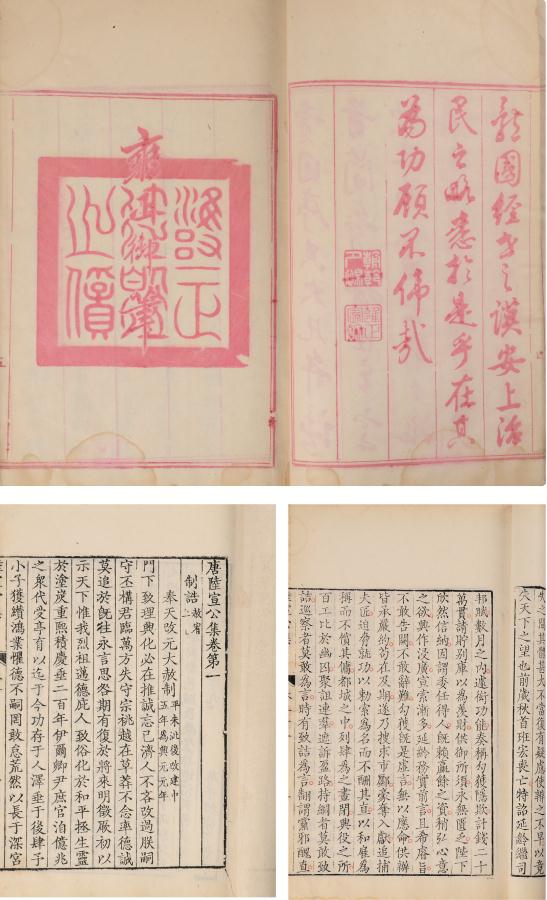 體國經野之謨安上治
民之略悉於是乎在其
為功顧不偉哉
雍正御筆之寶
唐陸宣公集卷第一
制誥 赦宥
奉天改元大赦制 平朱泚後改建中五年為興元元年
門下致理興化必在推誠忘己濟人不吝改過朕嗣
守丕構君臨萬方失守宗祧越在草莽不念率德誠
莫追於既往永言思咎期有復於將來明徵厥初以
示天下惟我烈祖邁德庇人致俗化於和平拯生靈
於塗炭重熙積慶垂二百年伊爾卿尹庶官洎億兆
之衆代受亭育以迄于今功存于人澤垂于後肆予
小子獲纘鴻業懼德不嗣罔敢怠荒然以長于深宮
之間其體甚大不當復有疑慮使之不早以竟
失天下之望也前歲秋首班宏喪亡特詔延齡繼司
邦賦數月之內遽衒功能奏稱勾獲隱欺計錢二十
萬貫請貯別庫以為羨財供御所須永無匱乏陛下
欣然信納因謂委任得人既賴贏餘之資稍弘心意
之欲興作浸廣宣索漸多延齡務實前言且希睿旨
不敢告闕不敢辭難勾獲既是虛言無以應命供辦
皆承嚴約苟在及期遂乃搜求市鄽豪奪入獻追捕
夫匠迫脅就功以勑索為名而不酬其直以和雇為
稱而不償其傭都城之中列肆為之晝閉興役之所
百工比於幽囚聚詛連羣遮訴盈路持綱者莫敢致
詰巡察者莫敢為言時有致詰為言翻謂黨邪醜直